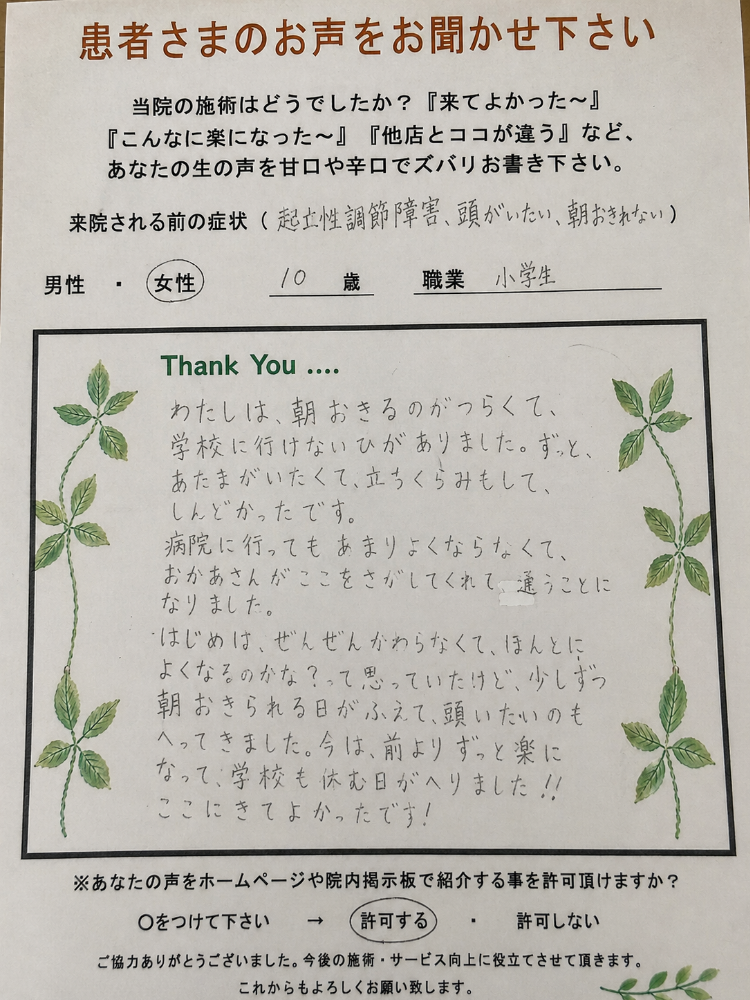 患者さまのお声をお聞かせ下さい
当院の施術はどうでしたか？『来てよかった～』
『こんなに楽になった～』『他店とココが違う』など、
あなたの生の声を甘口や辛口でズバリお書き下さい。
来院される前の症状（起立性調節障害、頭がいたい、朝おきれない）
男性 ・ 女性 10 歳 職業 小学生
Thank You ....
わたしは、朝おきるのがつらくて、
学校に行けないひがありました。ずっと、
あたまがいたくて、立ちくらみもして、
しんどかったです。
病院に行ってもあまりよくならなくて、
おかあさんがここをさがしてくれて、通うことに
なりました。
はじめは、ぜんぜんかわらなくて、ほんとに
よくなるのかな？って思っていたけど、少しずつ
朝おきられる日がふえて、頭いたいのも
へってきました。今は、前よりずっと楽に
なって、学校も休む日がへりました!!
ここにきてよかったです!
※あなたの声をホームページや院内掲示板で紹介する事を許可頂けますか？
〇をつけて下さい → 許可する ・ 許可しない
ご協力ありがとうございました。今後の施術・サービス向上に役立てさせて頂きます。
これからもよろしくお願い致します。